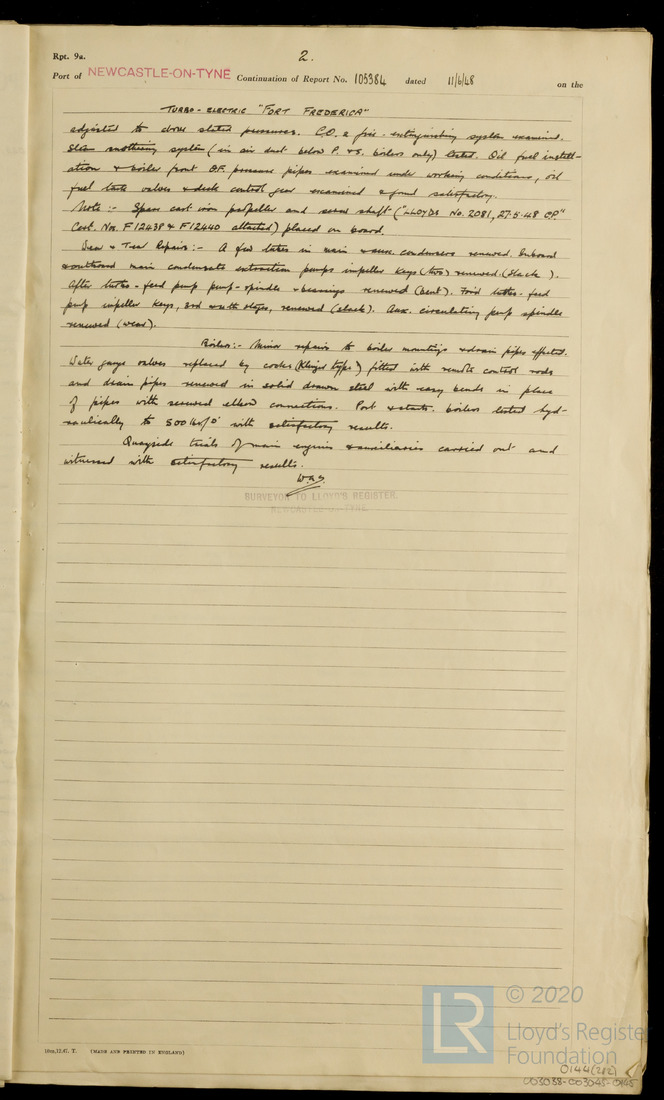 Rpt. 9a.
2.
Port of NEWCASTLE-ON-TYNE Continuation of Report No. 105384 dated 11/6/48 on the
TURBO-ELECTRIC "FORT FREDERICA"
adjusted to above stated pressures. CO2 fire-extinguishing system examined.
Steam smothering system (in air duct below P. & S. boilers only) tested. Oil fuel install-
ation & boiler front O.F. pressure pipes examined under working conditions, oil
fuel tank valves & deck control gear examined & found satisfactory.
Note:- Spare cast iron propeller and screw shaft ("LLOYDS No. 2081, 27.5.48 CP"
Cert. Nos. F12438 & F12440 attached) placed on board.
Wear & Tear Repairs:- A few tubes in main & aux. condensers renewed. Inboard
& outboard main condensate extraction pumps impeller keys (two) renewed (slack).
After turbo-feed pump pump-spindle & bearings renewed (bent). Ford turbo-feed
pump impeller keys, 3rd & 4th stage, renewed (slack). Aux. circulating pump spindle
renewed (wear).
Boilers:- Minor repairs to boiler mountings & drain pipes effected.
Water gauge valves replaced by cocks (Klinger type) fitted with remote control rods
and drain pipes renewed in solid drawn steel with easy bends in place
of pipes with screwed elbow connections. Port & starb. boilers tested hyd-
raulically to 500 lbs/□" with satisfactory results.
Quayside trials of main engines & auxiliaries carried out and
witnessed with satisfactory results.
SURVEYOR TO LLOYD'S REGISTER.
NEWCASTLE-ON-TYNE
LR © 2020
Lloyd's Register
Foundation
10m,12.47. T. (MADE AND PRINTED IN ENGLAND)
0144(2/2)
003038-003045-0145